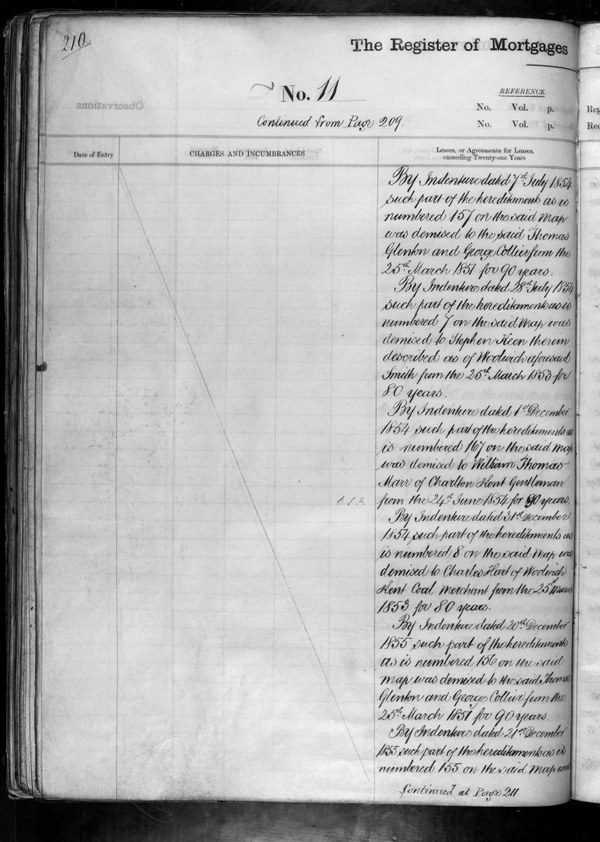 210
The Register of Mortgages
No. 11
REFERENCE.
No. Vol. p.
Continued from Page 209.
No. Vol. p.
Reg
Rec
Date of Entry
CHARGES AND INCUMBRANCES
Leases, or Agreements for Leases,
exceeding Twenty-one Years
By Indenture dated 7th July 1854
such part of the hereditaments as is
numbered 157 on the said map
was demised to the said Thomas
Glenton and George Collier from the
25th March 1851 for 90 years.
By Indenture dated 28th July 1854
such part of the hereditaments as is
numbered 7 on the said map was
demised to Stephen Keen therein
described as of Woolwich aforesaid
Smith from the 25th March 1853 for
80 years.
By Indenture dated 1st December
1854 such part of the hereditaments as
is numbered 167 on the said map
was demised to William Thomas
Marr of Charlton Kent Gentleman
from the 24th June 1854 for 90 years.
By Indenture dated 31st December
1854 such part of the hereditaments as
is numbered 8 on the said map was
demised to Charles Hart of Woolwich
Kent Coal Merchant from the 25th March
1853 for 80 years.
By Indenture dated 20th December
1855 such part of the hereditaments
as is numbered 156 on the said
map was demised to the said Thomas
Glenton and George Collier from the
25th March 1851 for 90 years.
By Indenture dated 21st December
1855 such part of the hereditaments as is
numbered 155 on the said Map was
Continued at Page 211